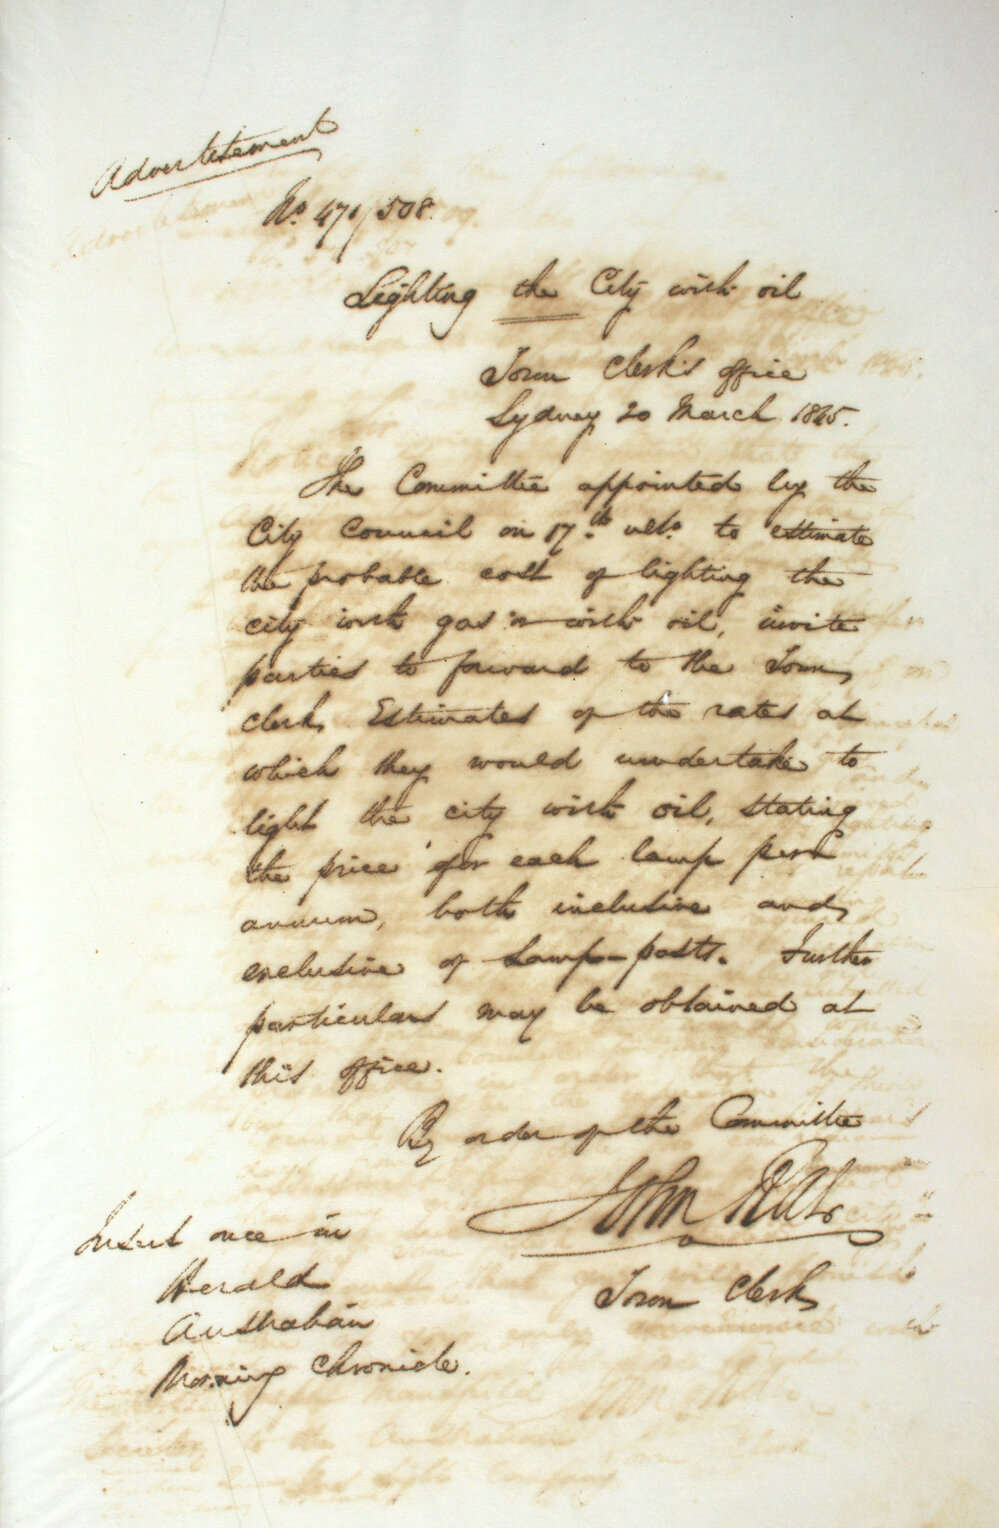 Advertisement
No. 471/508.
Lighting the City with oil
Town Clerk's office
Sydney 20 March 1845.
The Committee appointed by the
City Council on 17th ulto. to estimate
the probable cost of lighting the
city with gas or with oil, invite
parties to forward to the Town
Clerk, Estimates of the rates at
which they would undertake to
light the city with oil, stating
the price for each lamp per
annum, both inclusive and
exclusive of Lamp-posts. Further
particulars may be obtained at
this office.
By order of the Committee
John
Town Clerk
Insert once in
Herald
Australian
Morning Chronicle.